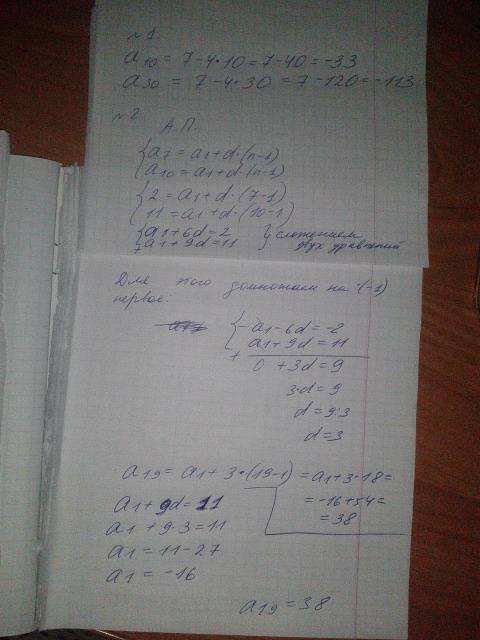 №1.
a10 = 7-4*10 = 7-40 = -33
a30 = 7-4*30 = 7-120 = -113
№2
А.П.
{a7 = a1+d·(n-1)
{a10 = a1+d·(n-1)
{2 = a1+d·(7-1)
{11 = a1+d·(10-1)
{a1+6d=2 } сложением
{a1+9d=11 } двух уравнений
+
Для этого домножаем на ·(-1)
первое:
{-a1-6d=-2
{a1+9d=11
+
0 +3d=9
3·d=9
d=9:3
d=3
a19 = a1+3*(19-1) = a1+3*18=
= -16+54=
= 38
a1+9d=11
a1+9·3=11
a1 = 11-27
a1 = -16
a19 = 38